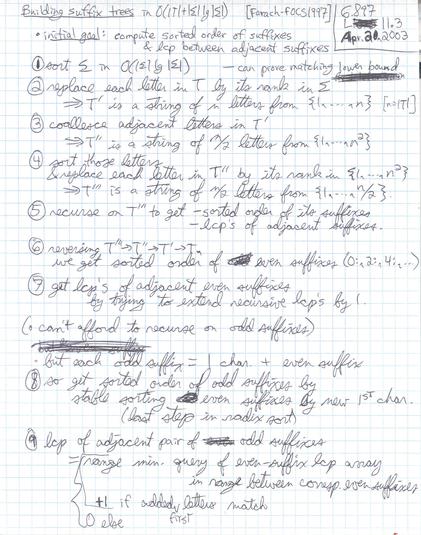 Building suffix trees in O(|T|+|Σ| lg |Σ|) [Farach-FOCS1997]
6.897
L 11.3
Apr. 2, 2003
• initial goal: compute sorted order of suffixes
& lcp between adjacent suffixes
① sort Σ in O(|Σ| lg |Σ|) — can prove matching lower bound
② replace each letter in T by its rank in Σ
⇒ T' is a string of n letters from {1,...,n} [n=|T|]
③ coallesce adjacent letters in T'
⇒ T'' is a string of n/2 letters from {1,...,n²}
④ sort those letters
& replace each letter in T'' by its rank in {1,...,n²}
⇒ T''' is a string of n/2 letters from {1,...,n/2}
⑤ recurse on T''' to get - sorted order of its suffixes
- lcp's of adjacent suffixes.
⑥ reversing T'''→T''→T'→T,
we get sorted order of even suffixes (0:, 2:, 4:, ...)
⑦ get lcp's of adjacent even suffixes
by trying to extend recursive lcp's by 1.
(• can't afford to recurse on odd suffixes)
- but each odd suffix = 1 char. + even suffix
⑧ so get sorted order of odd suffixes by
stable sorting even suffixes by new 1ST char.
(last step in radix sort)
⑨ lcp of adjacent pair of odd suffixes
= range min. query of even-suffix lcp array
in range between corresp. even suffixes
+1 if added letters match
0 else first